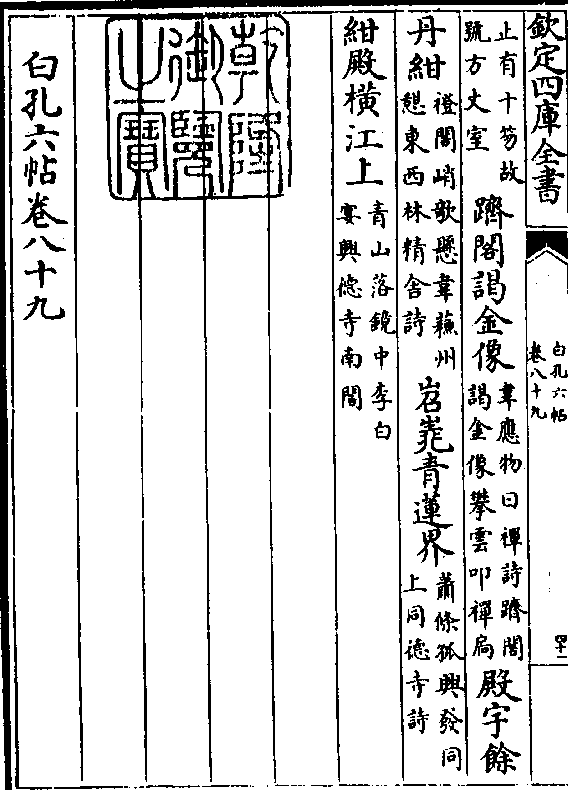 欽定四庫全書
白孔六帖
卷八十九
四十二
止有十笏故
號方丈室
躋閣謁金像
韋應物曰禪詩躋閣
謁金像攀雲叩禪扃
殿宇餘
丹紺
磴閣峭欹懸韋蘇州
憩東西林精舍詩
岧嶤青蓮界
蕭條孤興發同
上同德寺詩
紺殿橫江上
青山落鏡中李白
宴興德寺南閣
乾隆御覽之寶
白孔六帖卷八十九